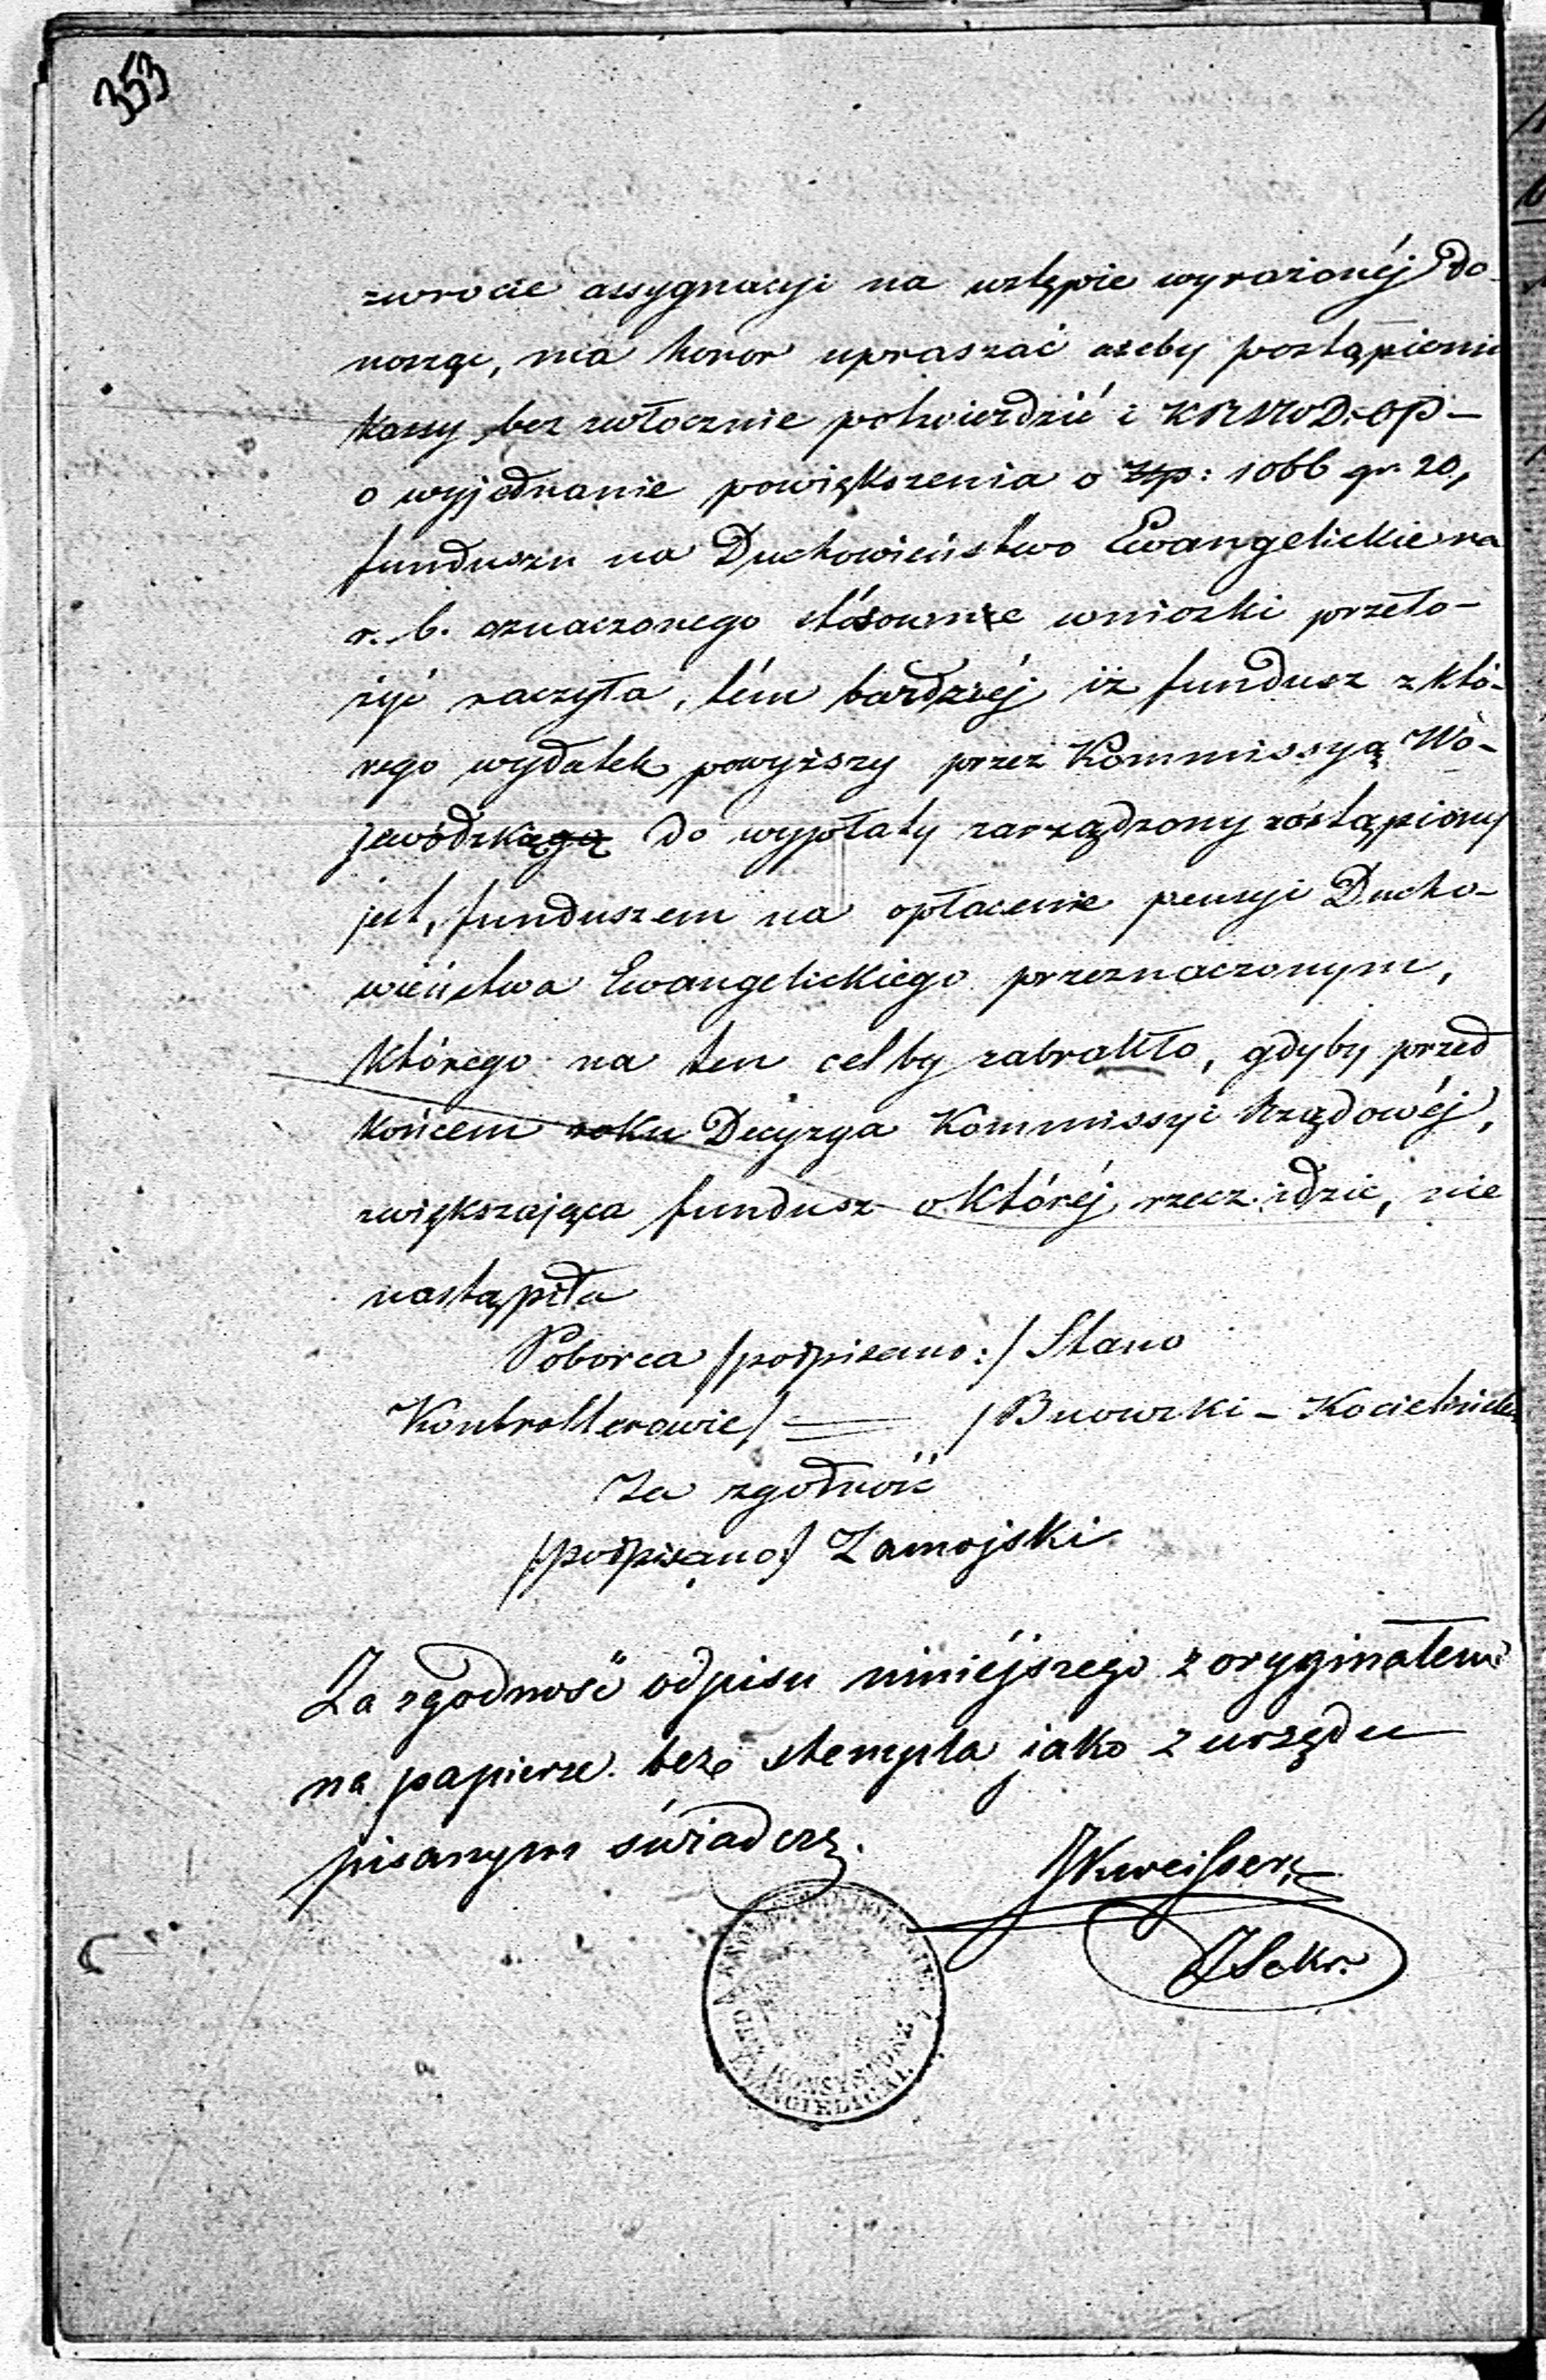 353
zwrocie assygnacyi na wstępie wyrażonéj do-
nosząc, ma honor upraszać ażeby postąpienie
kassy bezzwłocznie potwierdzić i KRSWOD:OP-
o wyjednanie powiększenia o Złp: 1066 gr. 20,
funduszu na Duchowieństwo Ewangelickie na
r. b. oznaczonego stósownie wnioski przeło-
żyć raczyła, tém bardziéj iż fundusz z któ-
rego wydatek powyższy przez Kommissyą Wo-
jewódzką do wypłaty zarządzony zóstąpiony
jest, funduszem na opłacenie pensyi Ducho-
wieństwa Ewangelickiego przeznaczonym,
którego na ten cel by zabrakło, gdyby przed
końcem roku Decyzya Kommissyi Rządowéj,
zwiększająca fundusz o któréj rzecz idzie, nie
nastąpiła
Poborca /podpisano:/ Stano
Kontrollerowie/ = /Bnowski - Kocielnicki
Za zgodność
/:podpisano:/ Zamojski
Za zgodność odpisu niniéjszego z oryginałem
na papierze bez stempla jako z urzędu
pisanym świadczę.
JKweisser
JSekr.
KONSYSTORZ
EWANGIELICKI